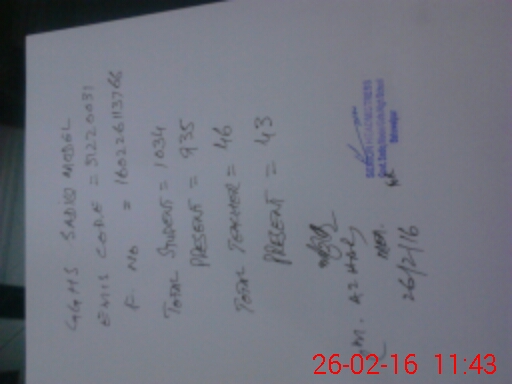 GGHS SADIQ MODEL
EMIS CODE = 31220031
F. NO = 160226113766
TOTAL STUDENT = 1034
PRESENT = 935
TOTAL TEACHER = 46
PRESENT = 43
M. AZHAR
26/2/16
26-02-16 11:43